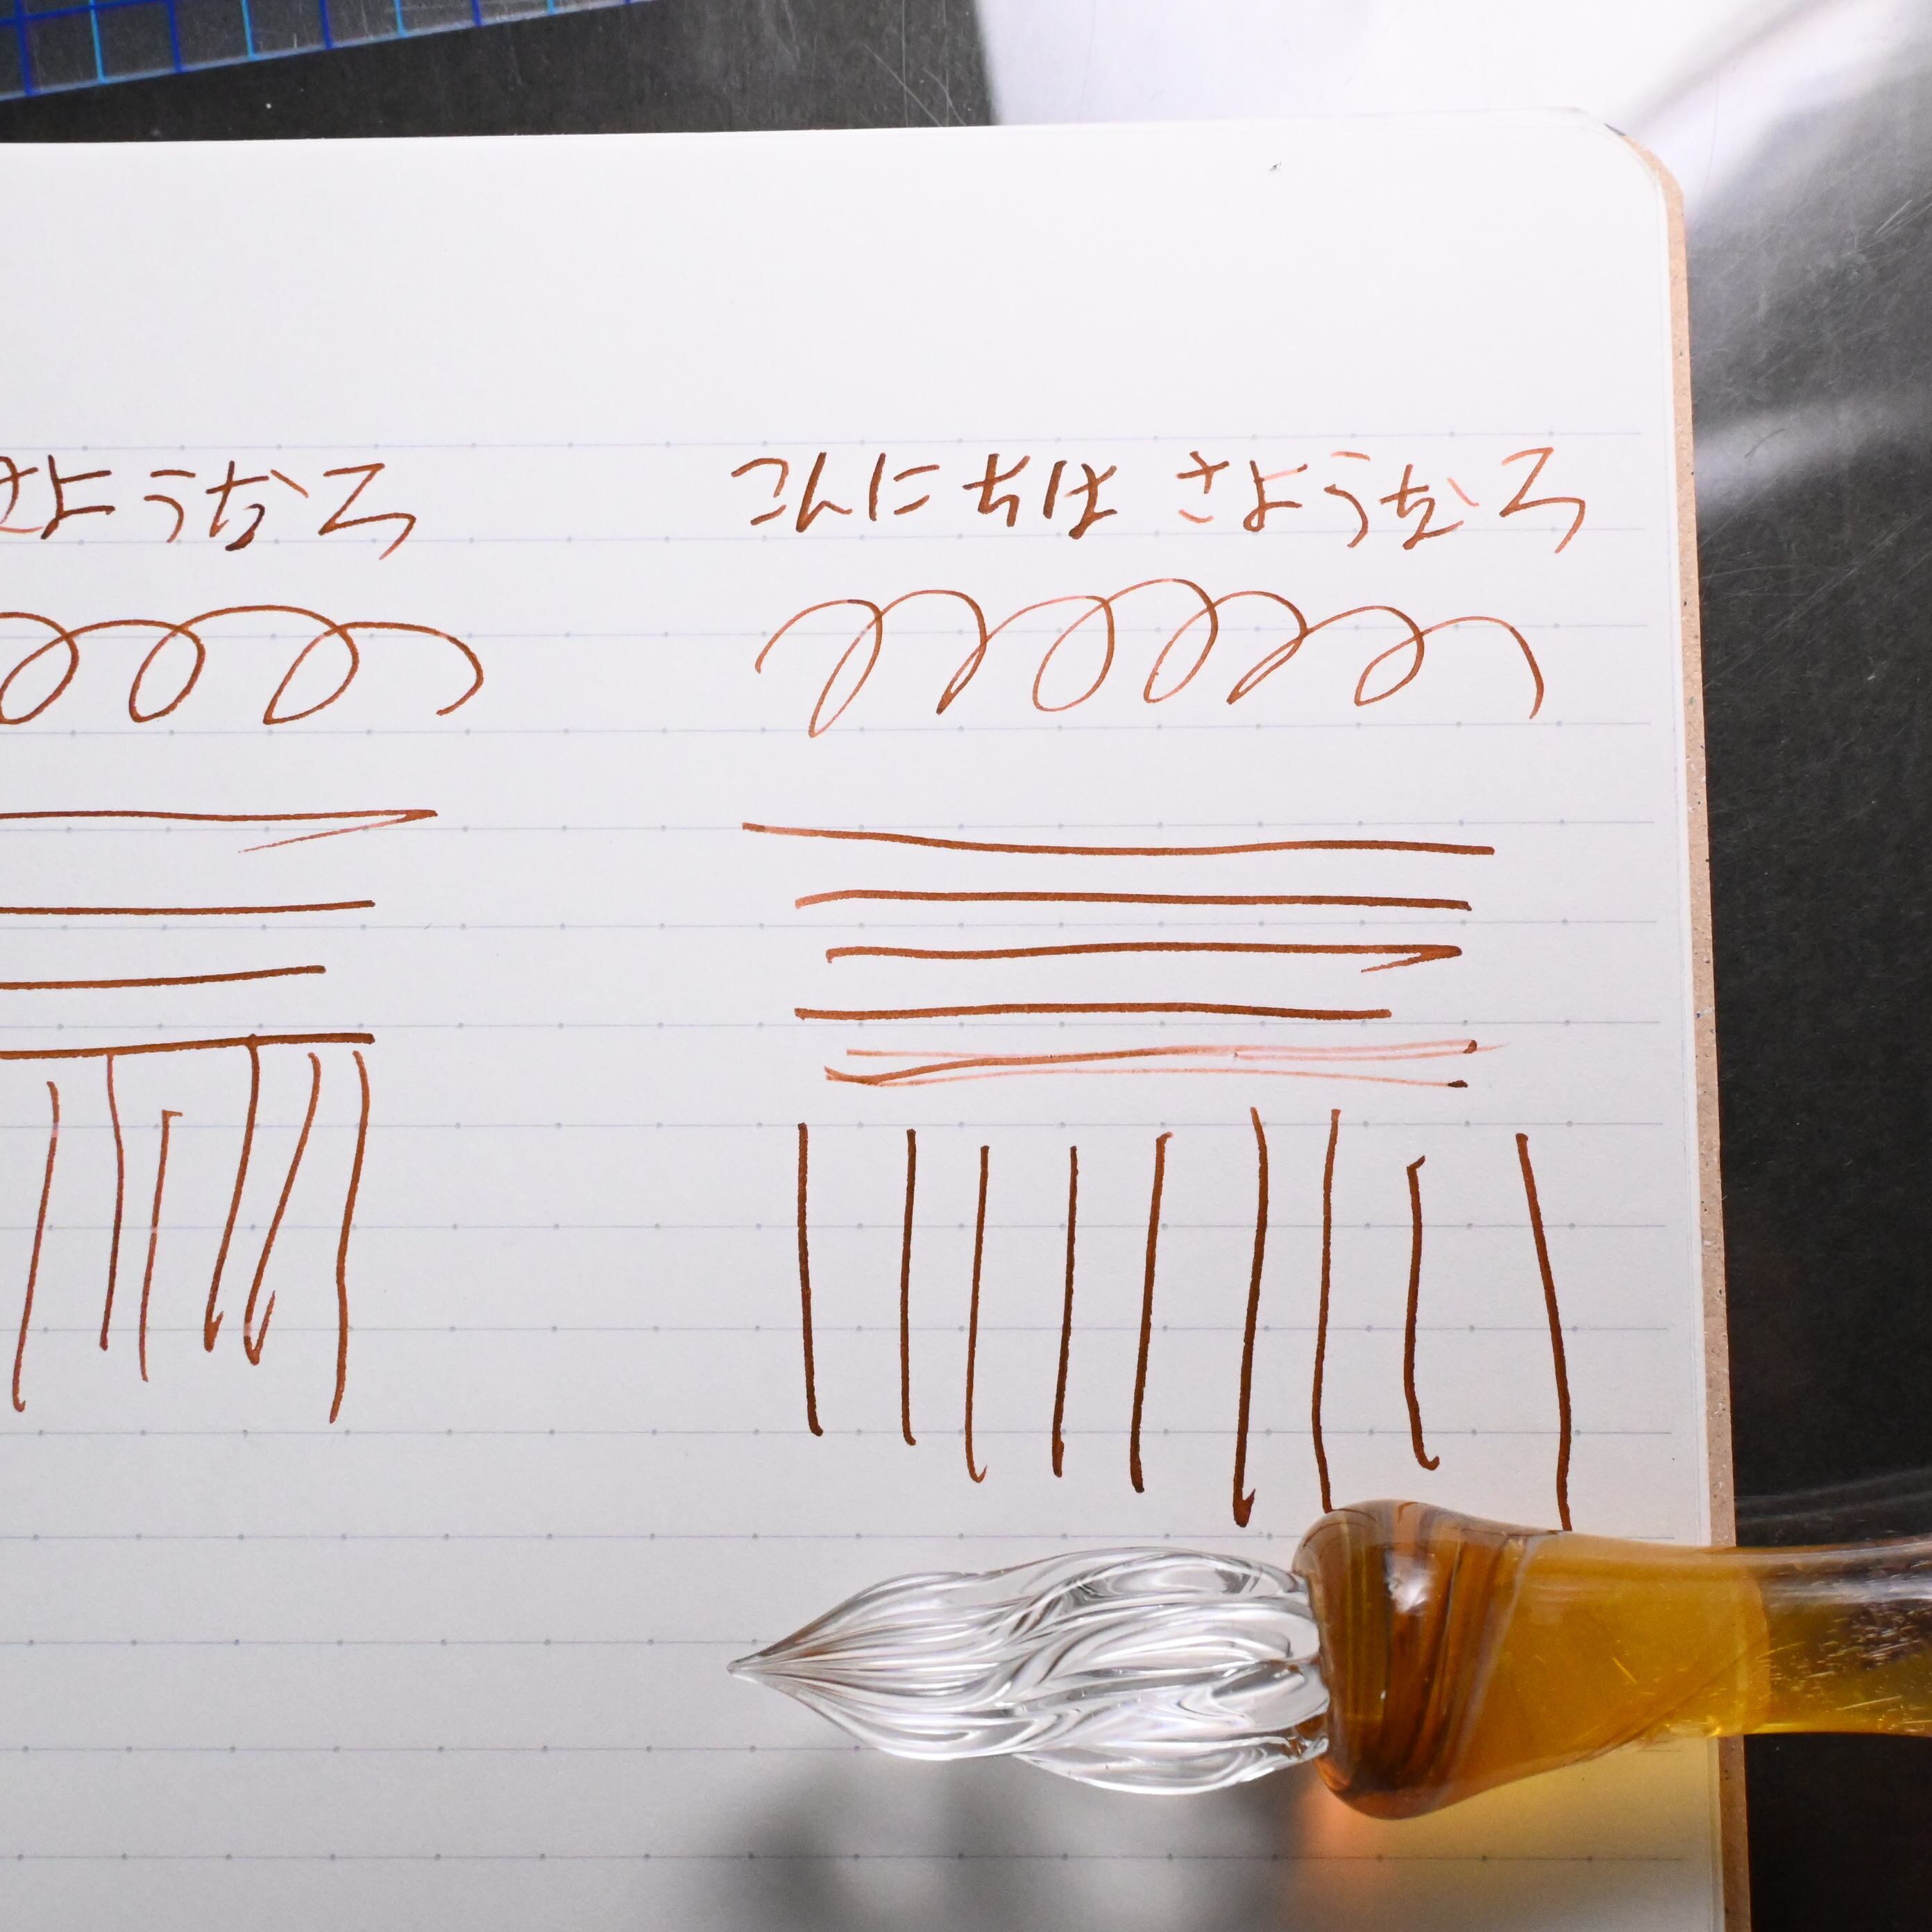 さようなら こんにちは さようなら